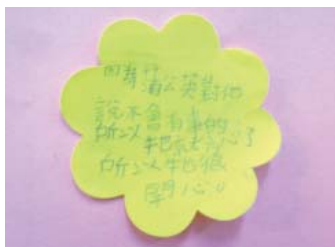 因為蒲公英對他
說不會有事的
所以牠就放心了
所以牠很
開心!!